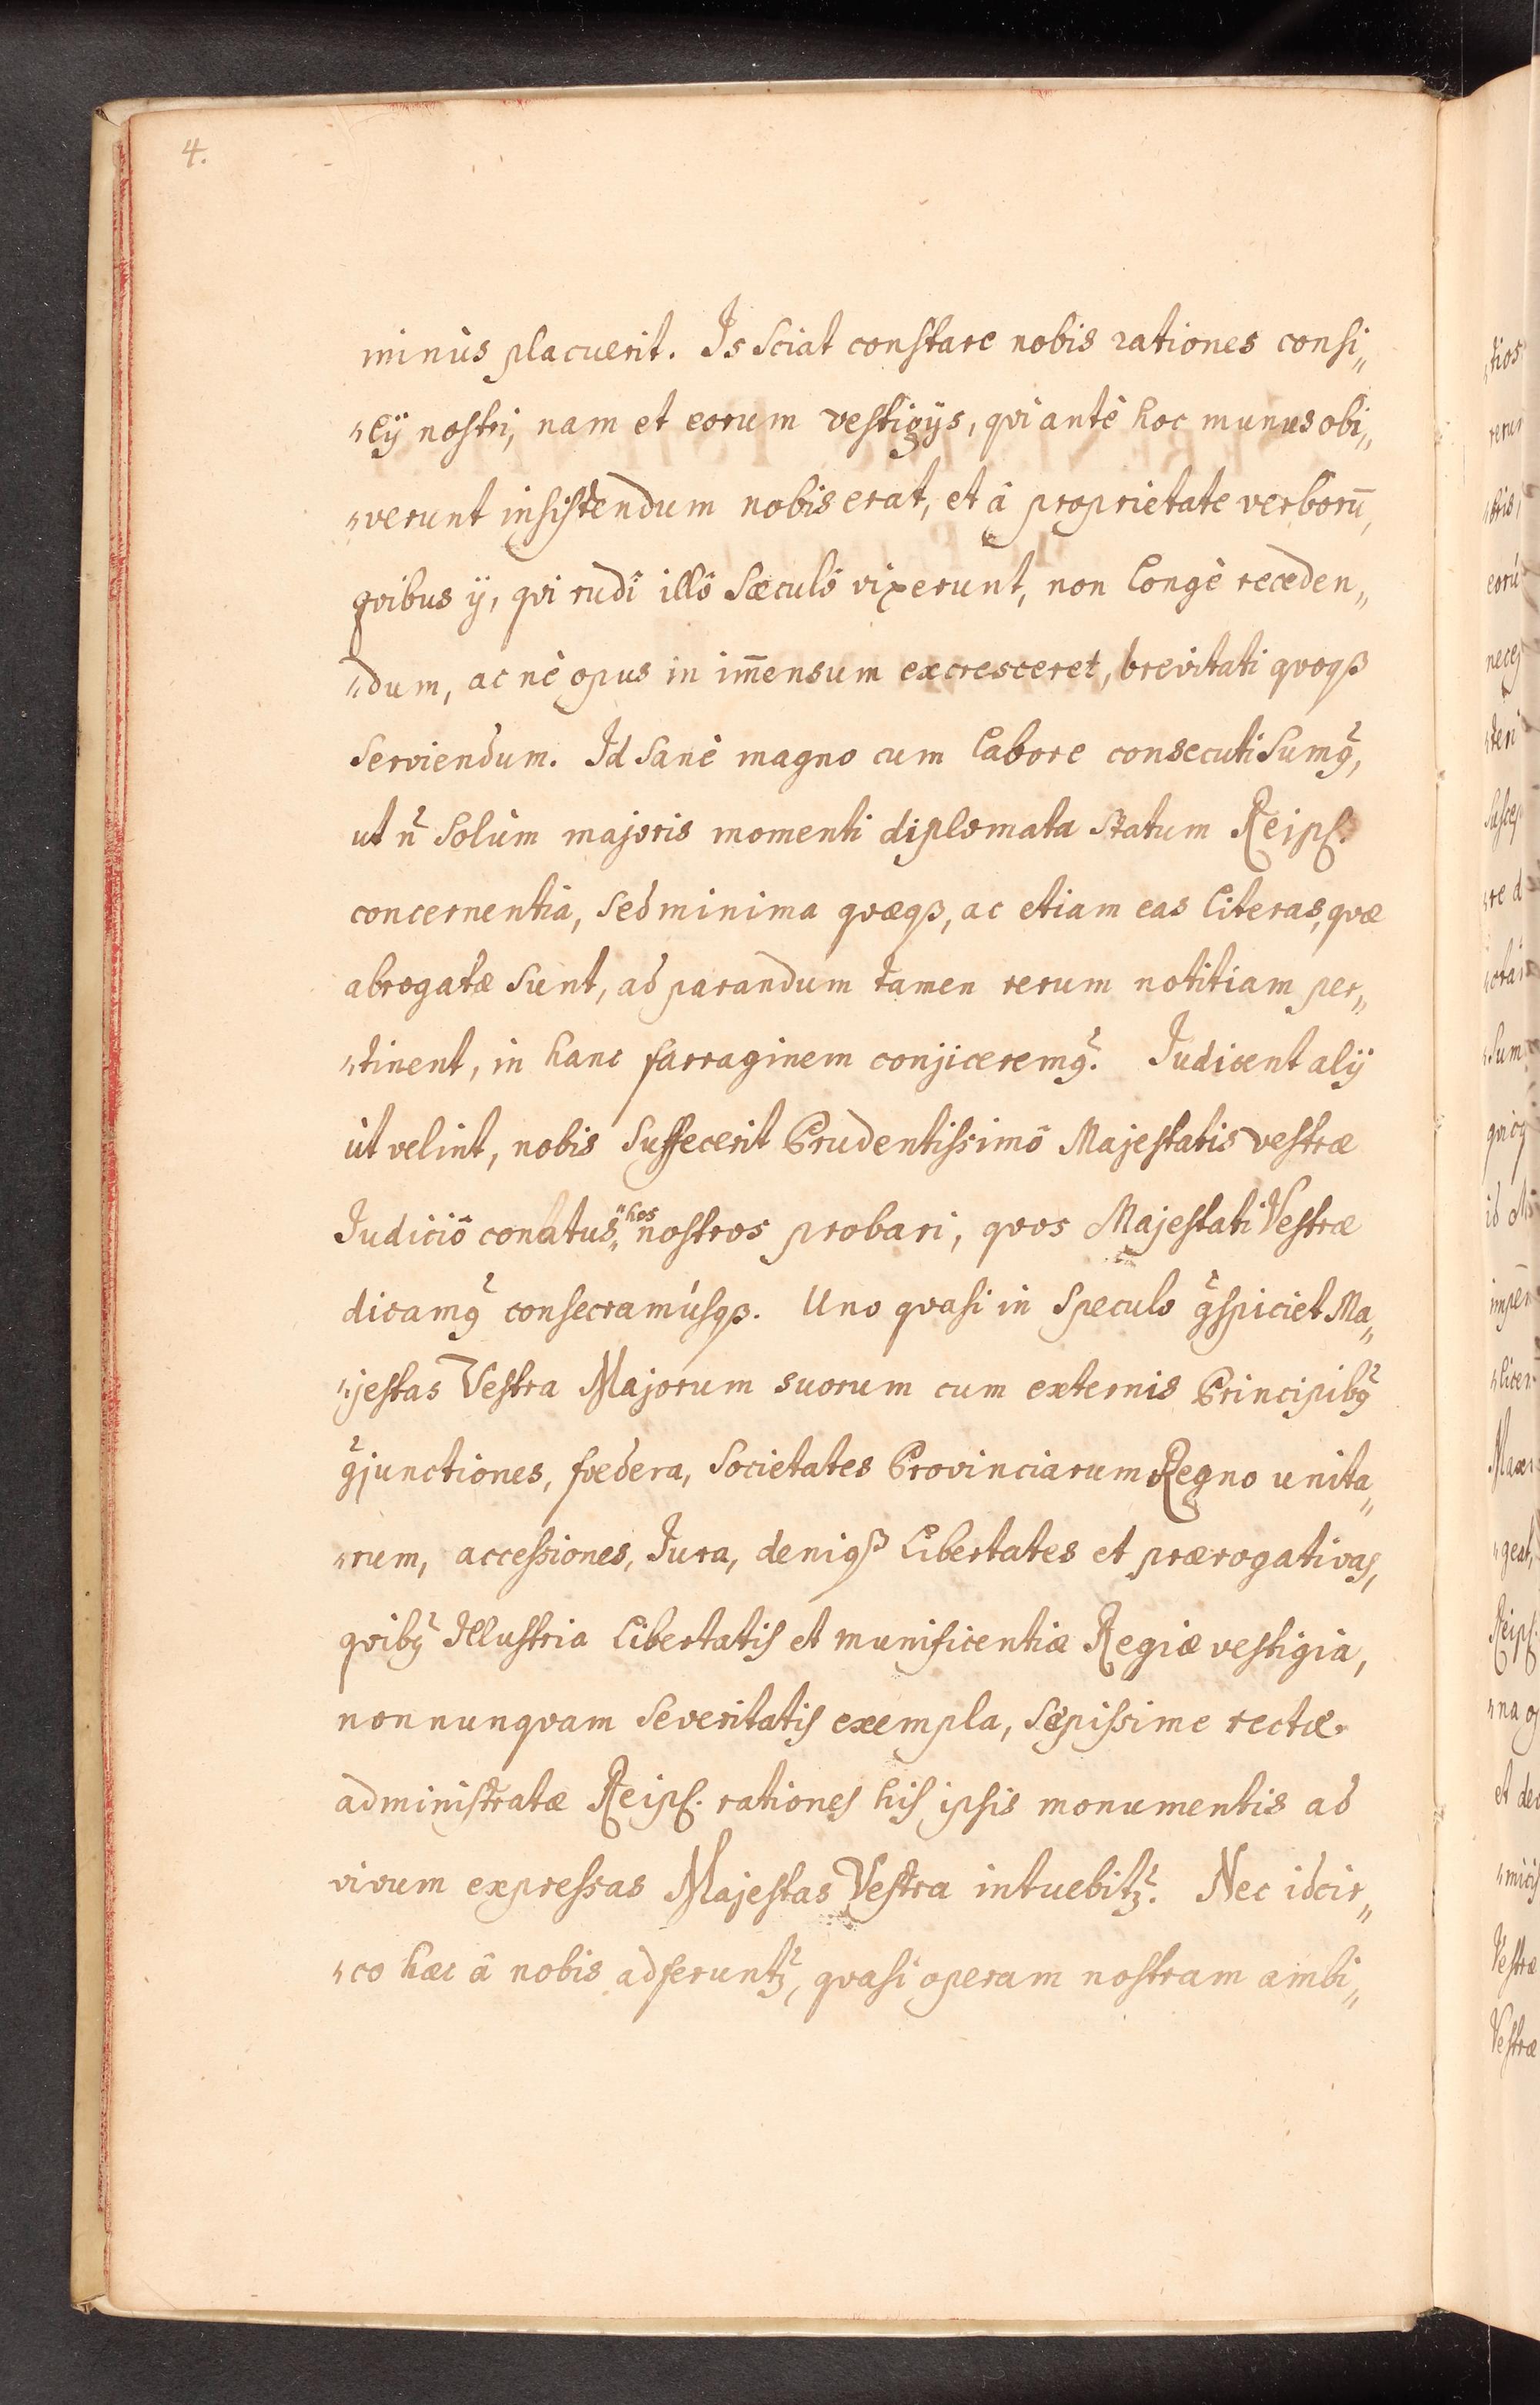 4.
minùs placuerit. Is Sciat constare nobis rationes consi„
„lÿ nostri, nam et eorum vestigÿs, qvi antè hoc munus obi„
„verunt insistendum nobis erat, et â proprietate verborū,
qvibus ÿ, qvi rudî illô Sæculô vixerunt, non longè receden„
„dum, ac nè opus in im̄ensum excresceret, brevitati qvoqꝫ
Serviendum. Id Sanè magno cum labore consecuti Sumꝰ,
ut n̄ Solùm majoris momenti diplomata Statum Reipſ.
concernentia, Sed minima qvæqꝫ, ac etiam eas literas, qvæ
abrogatæ Sunt, ad parandum tamen rerum notitiam per„
„tinent, in hanc farraginem conjiceremꝰ. Judicent alÿ
ùt velint, nobis Suffecerit Prudentissimô Majestatis vestræ
Judiciô conatus „hos nostros probari, qvos Majestati Vestræ
dicamꝰ consecramúsqꝫ. Uno qvasi in Speculo ꝯspiciet Ma„
„jestas Vestra Majorum suorum cum externis Principibꝰ
ꝯjunctiones, fœdera, Societates Provinciarum Regno unita„
„rum, accessiones, Jura, deniqꝫ Libertates et prærogativas,
qvibꝰ Illustria Libertatis et munificentiæ Regiæ vestigia,
nonnunqvam Severitatis exempla, Sæpissime rectæ
administratæ Reipſ. rationes his ipsis monumentis ad
vivum expressas Majestas Vestra intuebitꝛ. Nec idcir„
„co hæc â nobis adferuntꝛ, qvasi operam nostram ambi„